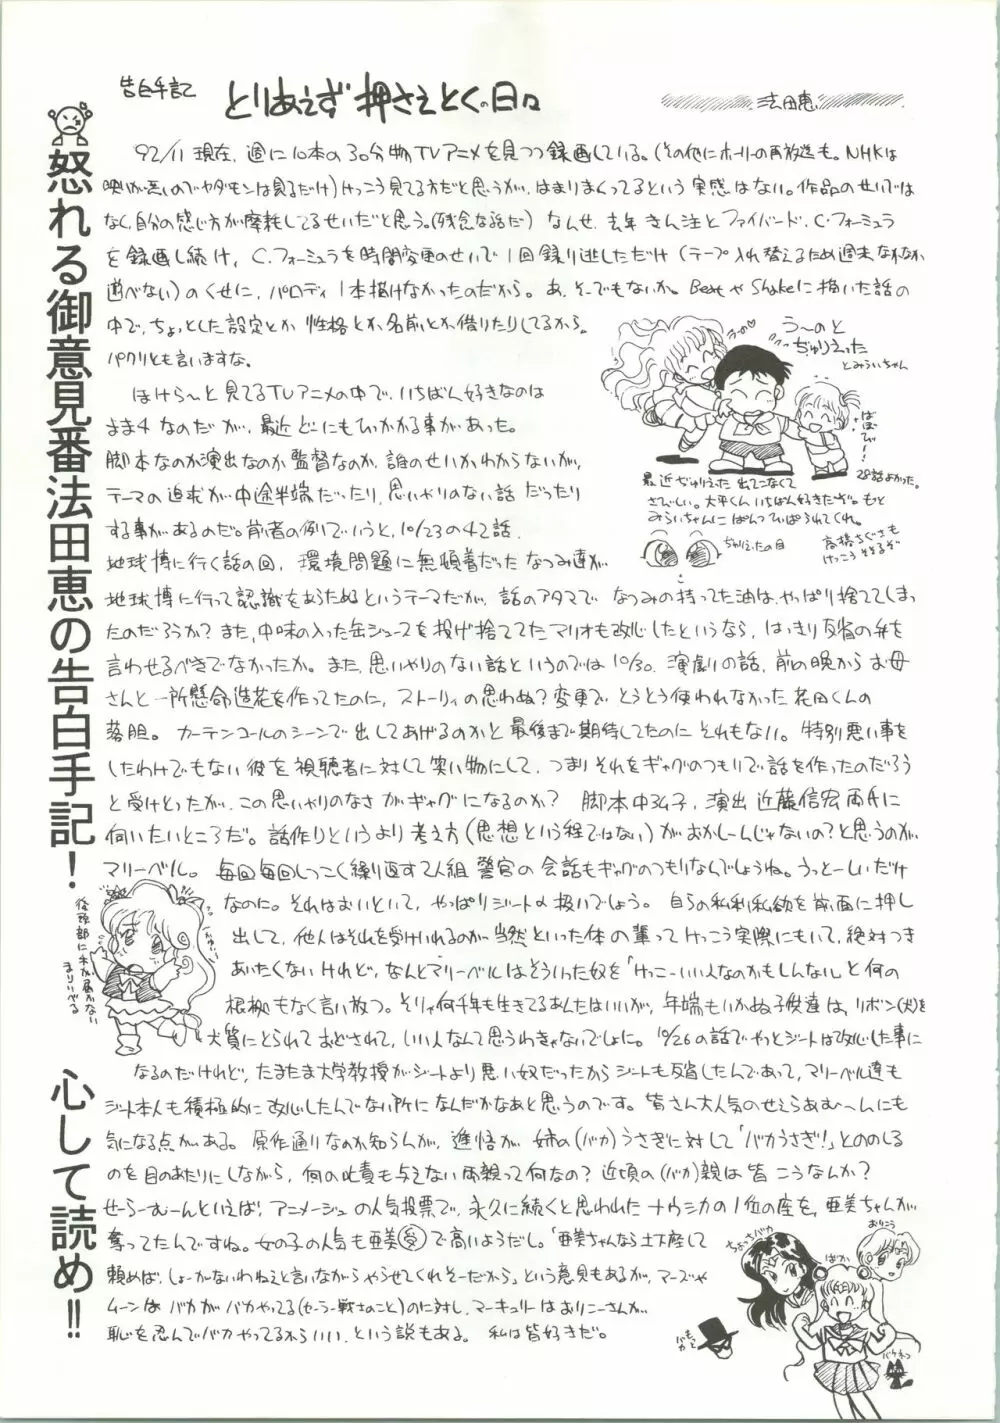 告白手記
とりあえず押さえとくの日々
法田恵
怒れる御意見番法田恵の告白手記！
心して読め!!
92/11現在、週に10本の30分物TVアニメを見つつ録画している。（その他にホーリーの再放送も。NHKは
映りが悪いのでヤダモンは見るだけ）けっこう見てる方だと思うが、はまりまくってるという実感はない。作品のせいでは
なく、自分の感じ方が摩耗してるせいだと思う。（残念な話だ）なんせ、去年きん注とファイバード、C・フォーミュラ
を録画し続け、C・フォーミュラを時間変更のせいで1回録り逃しただけ（テープ入れ替えるため週末なかなか
遊べない）のくせに、パロディ1本描けなかったのだから。あ、そーでもないか。BeatやShakeに描いた話の
中で、ちょっとした設定とか性格とか名前とか借りたりしてるから。
パクリとも言いますな。
ほけら〜と見てるTVアニメの中で、いちばん好きなのは
まま4なのだが、最近どーにもひっかかる事があった。
脚本なのか演出なのか監督なのか、誰のせいかわからないが、
テーマの追求が中途半端だったり、思いやりのない話だったり
する事があるのだ。前者の例でいうと、10/23の42話、
地球博に行く話の回、環境問題に無頓着だったなつみ達が
地球博に行って認識をあらためるというテーマだが、話のアタマでなつみの持ってた油は、やっぱり捨ててしまっ
たのだろうか？また、中味の入った缶ジュースを投げ捨ててたマリオも改心したというなら、はっきり反省の弁を
言わせるべきでなかったか。また、思いやりのない話というのでは10/30、演劇の話、前の晩からお母
さんと一所懸命造花を作ってたのに、ストーリィの思わぬ？変更で、とうとう使われなかった花田くんの
落胆。カーテンコールのシーンで出してあげるのかと最後まで期待してたのにそれもない。特別悪い事を
したわけでもない彼を視聴者に対して笑い物にして、つまりそれをギャグのつもりで話を作ったのだろう
と受けとったが、この思いやりのなさがギャグになるのか？脚本中弘子、演出近藤信宏両氏に
伺いたいところだ。話作りというより考え方（思想という程ではない）がおかしーんじゃないの？と思うのが、
マリーベル。毎回毎回しつこく繰り返す2人組警官の会話もギャグのつもりなんでしょうね。うっとーしいだけ
なのに。それはおいといて、やっぱりジートの扱いでしょう。自らの私利私欲を前面に押し
出して、他人はそれを受けいれるのが当然といった体の輩ってけっこう実際にもいて、絶対つき
あいたくないけれど、なんとマリーベルはそういった奴を「けっこーいい人なのかもしんない」と何の
根拠もなく言い放つ。そりゃ何千年も生きてるあんたはいいが、年端もいかぬ子供達は、リボン(犬)を
犬質にとられておどされて、いい人なんて思うわきゃないでしょに。10/26の話でやっとジートは改心した事に
なるのだけれど、たまたま大学教授がジートより悪い奴だったからジートも反省したんであって、マリーベル達も
ジート本人も積極的に改心したんでない所になんだかなあと思うのです。皆さん大人気のせえらあむ〜んにも
気になる点がある。原作通りなのか知らんが、進悟が姉の（バカ）うさぎに対して「バカうさぎ！」とののしる
のを目のあたりにしながら、何の叱責も与えない両親って何なの？近頃の（バカ）親は皆こうなんか？
せーらーむーんといえば、アニメージュの人気投票で、永久に続くと思われたナウシカの1位の座を、亜美ちゃんが
奪ってたんですね。女の子の人気も亜美㊙で高いようだし。「亜美ちゃんなら土下座して
頼めば、しょーがないわねえと言いながらやらせてくれそーだから」という意見もあるが、マーズや
ムーンはバカがバカやってる（セーラー戦士のこと）のに対し、マーキュリーはおりこーさんが
恥を忍んでバカやってるからいい、という説もある。私は皆好きだ。
う〜のと
ぢゅりえった
とみういちゃん
ばばびー！
28話よかった。
最近ぢゅりえった出てこなくて
さびしい。大平くんいちばん好きだぞ。もっと
みらいちゃんにぱんつひっぱられてくれ。
ぢゅりえったの目
高橋ちぐさも
けっこうそそるぞ
後頭部に手が届かない
まりいべる
ちょっとバカ
ばか
おりこう
もっと
バカ
バケネコ